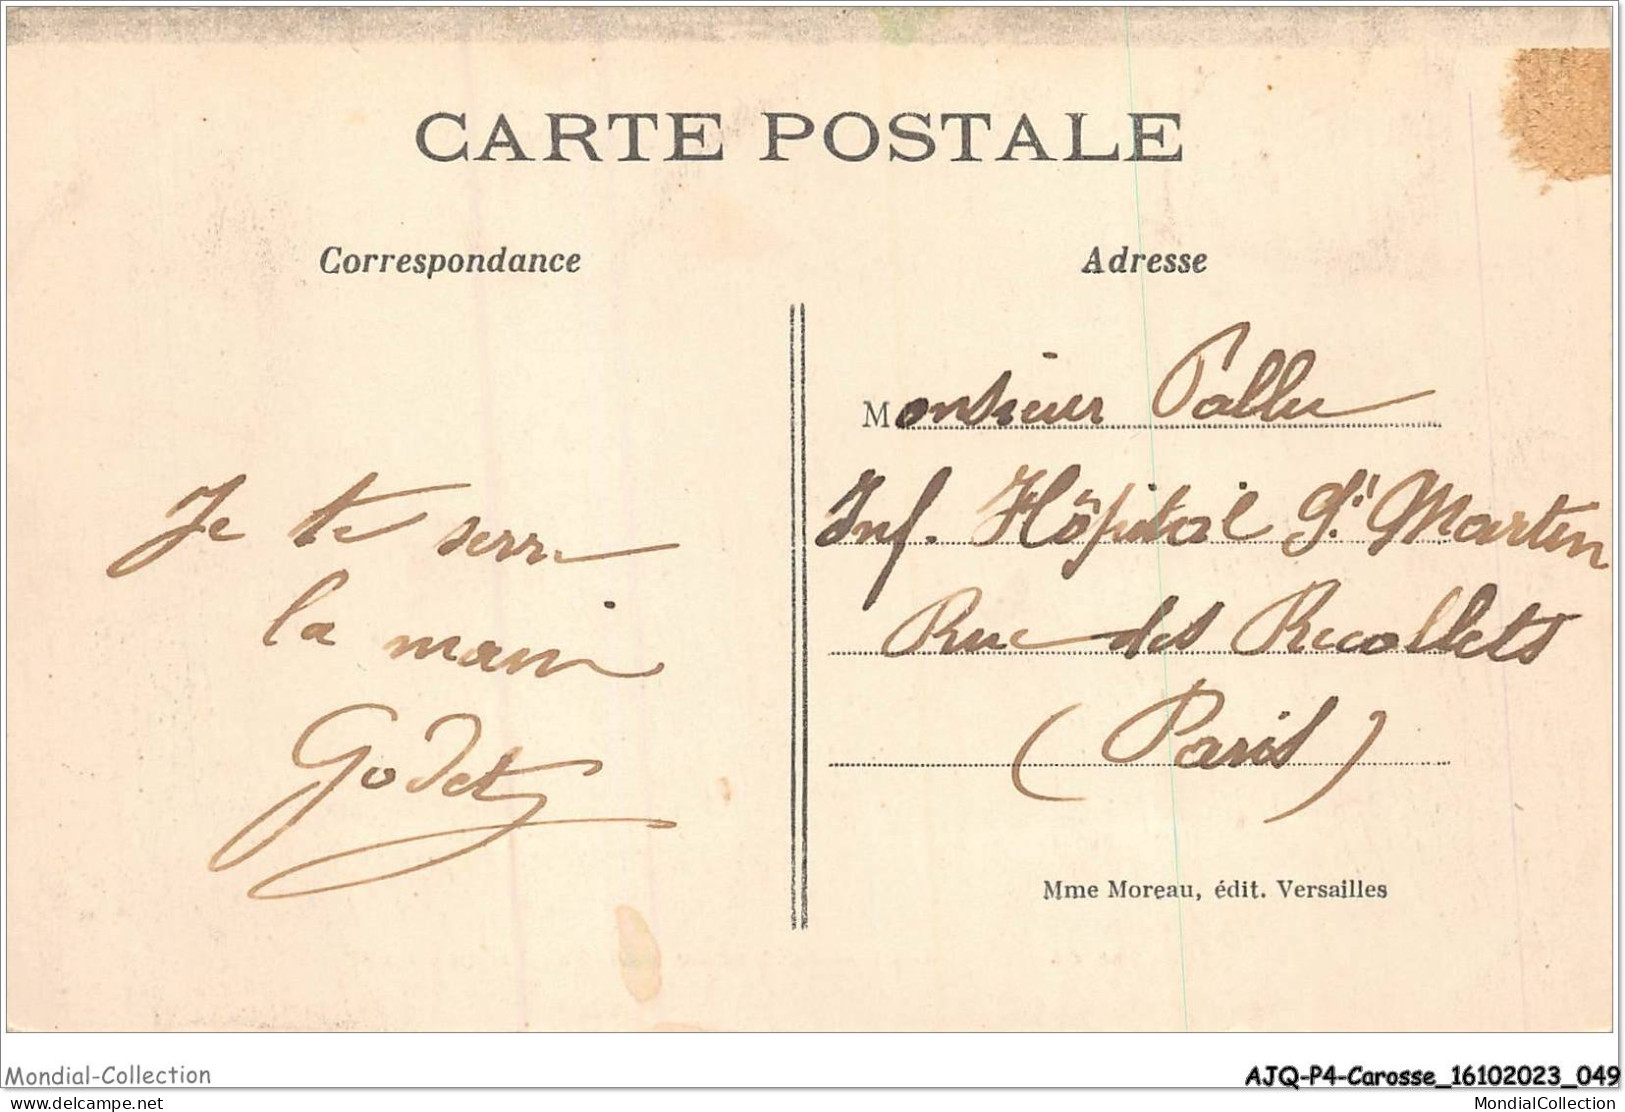 CARTE POSTALE
Correspondance
Adresse
Je te serre
la main
Godet
Monsieur Pallu
Inf. Hôpital St Martin
Rue des Recollets
(Paris)
Mme Moreau, édit. Versailles
Mondial-Collection
AJQ-P4-Carosse_16102023_049
www.delcampe.net
MondialCollection